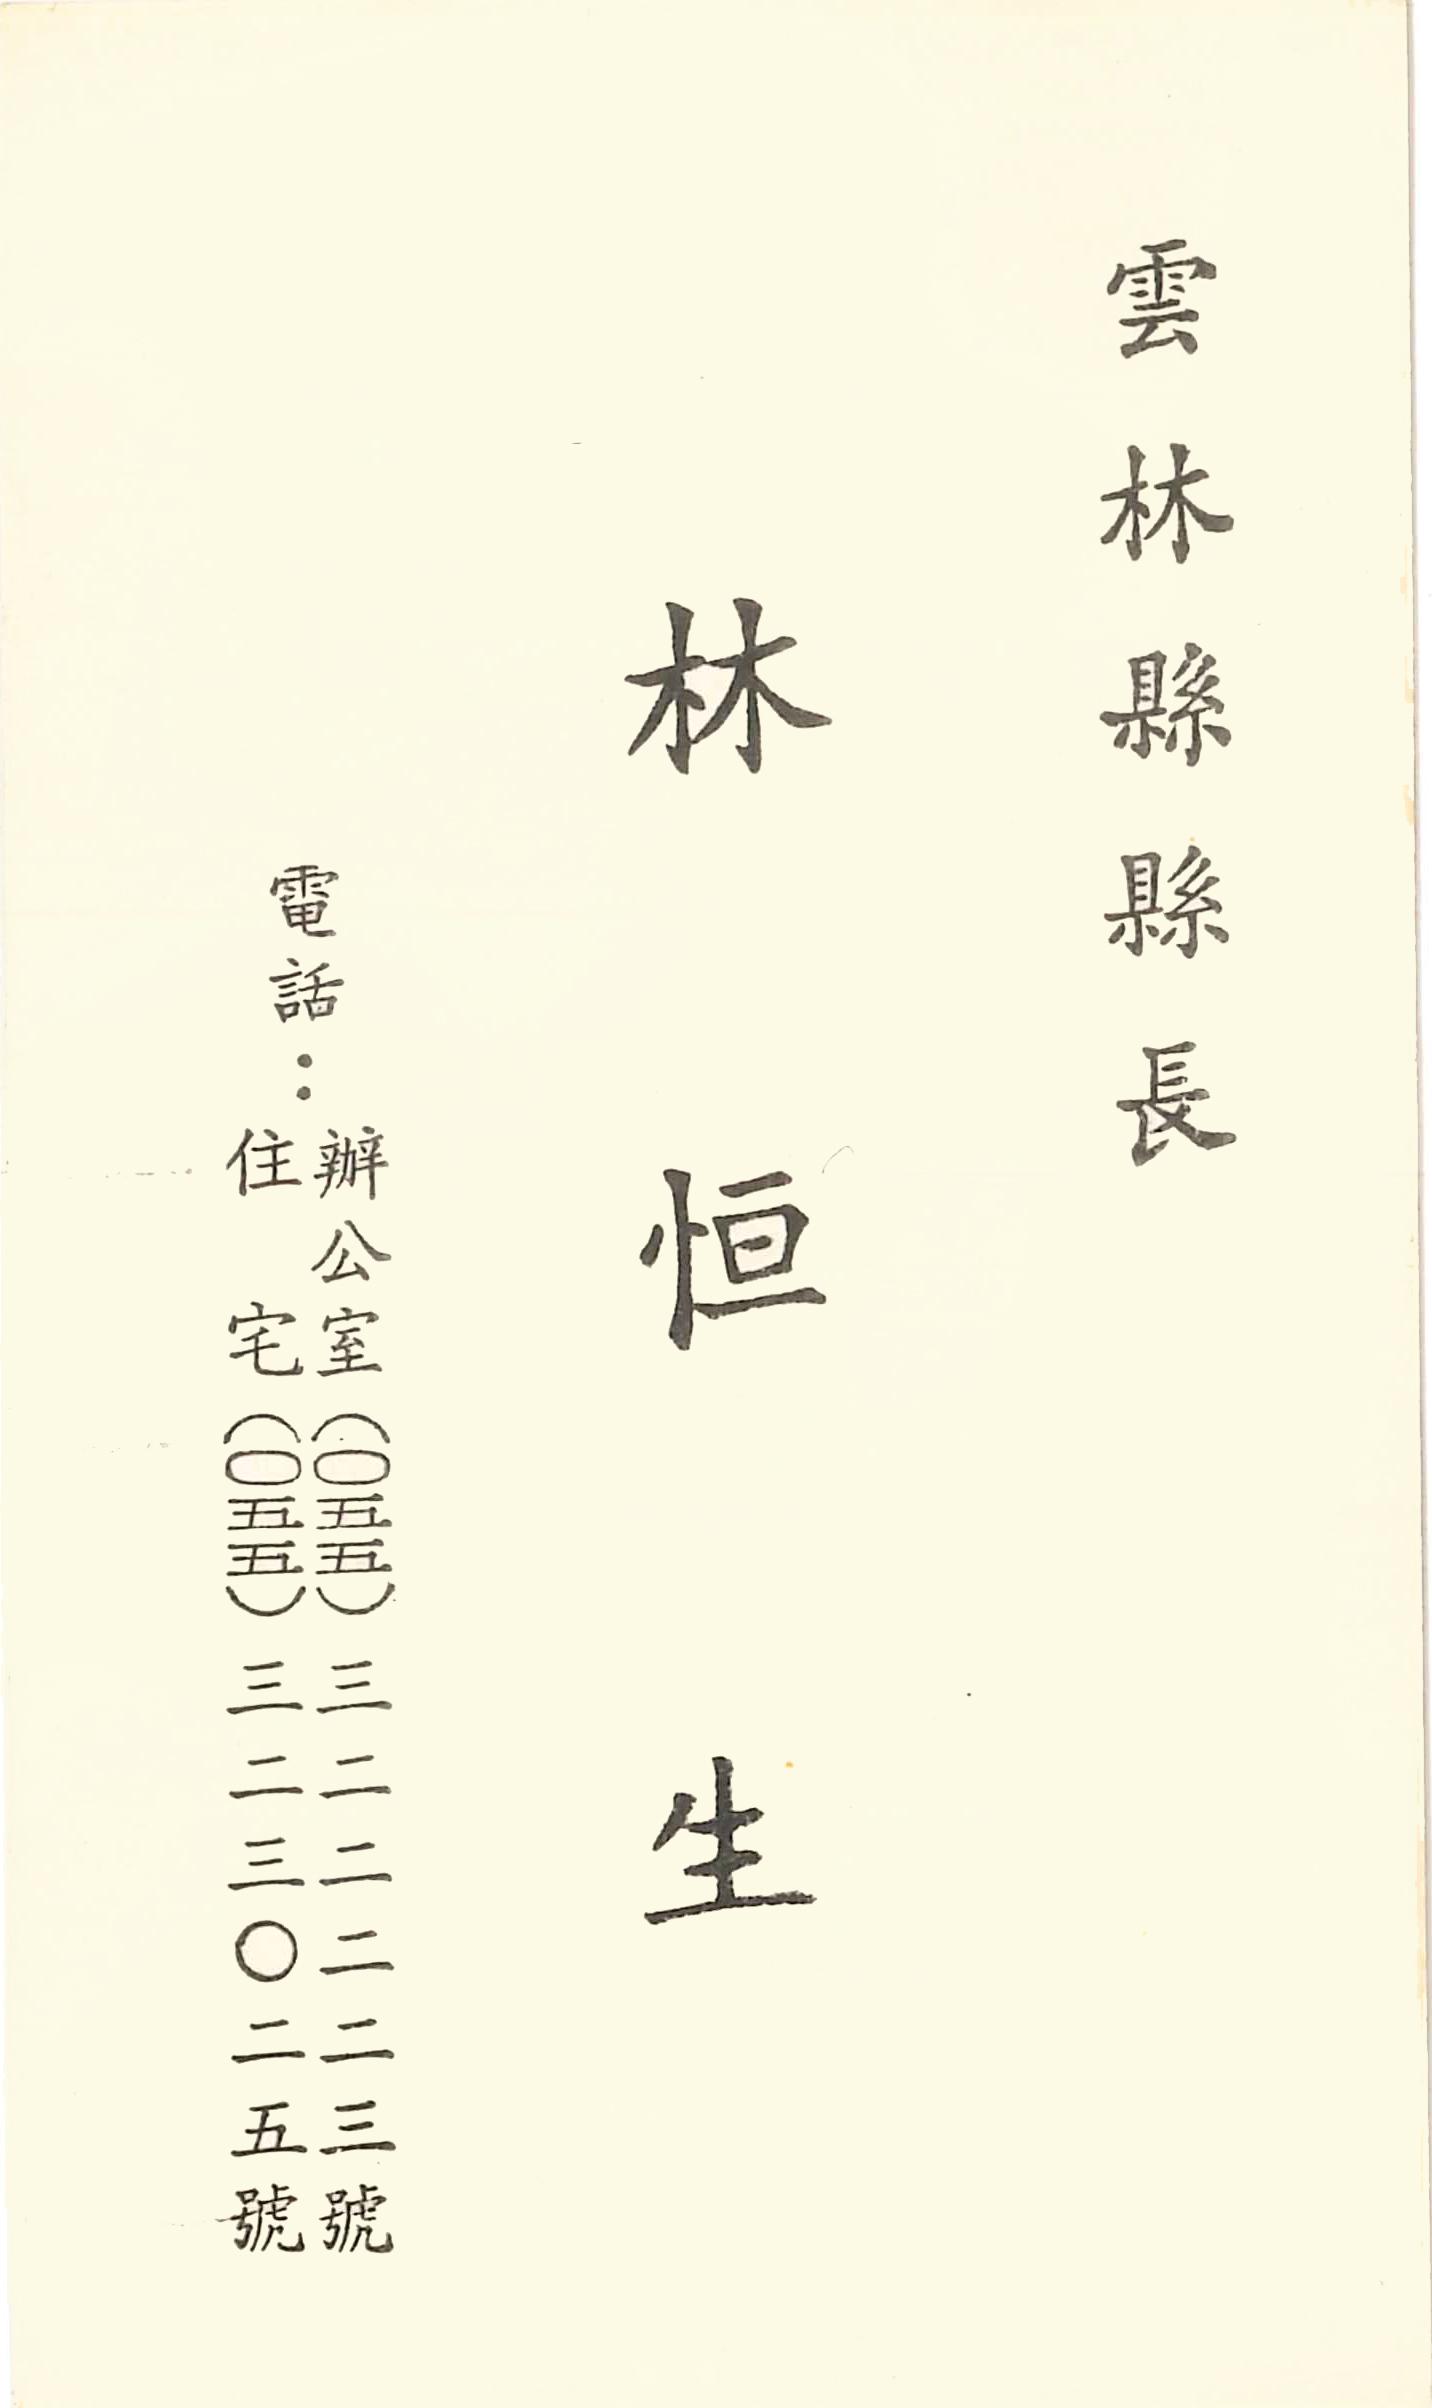 雲林縣縣長
林恒生
電話：
辦公室（〇五五）三二二二二三號
住宅（〇五五）三二三〇二五號